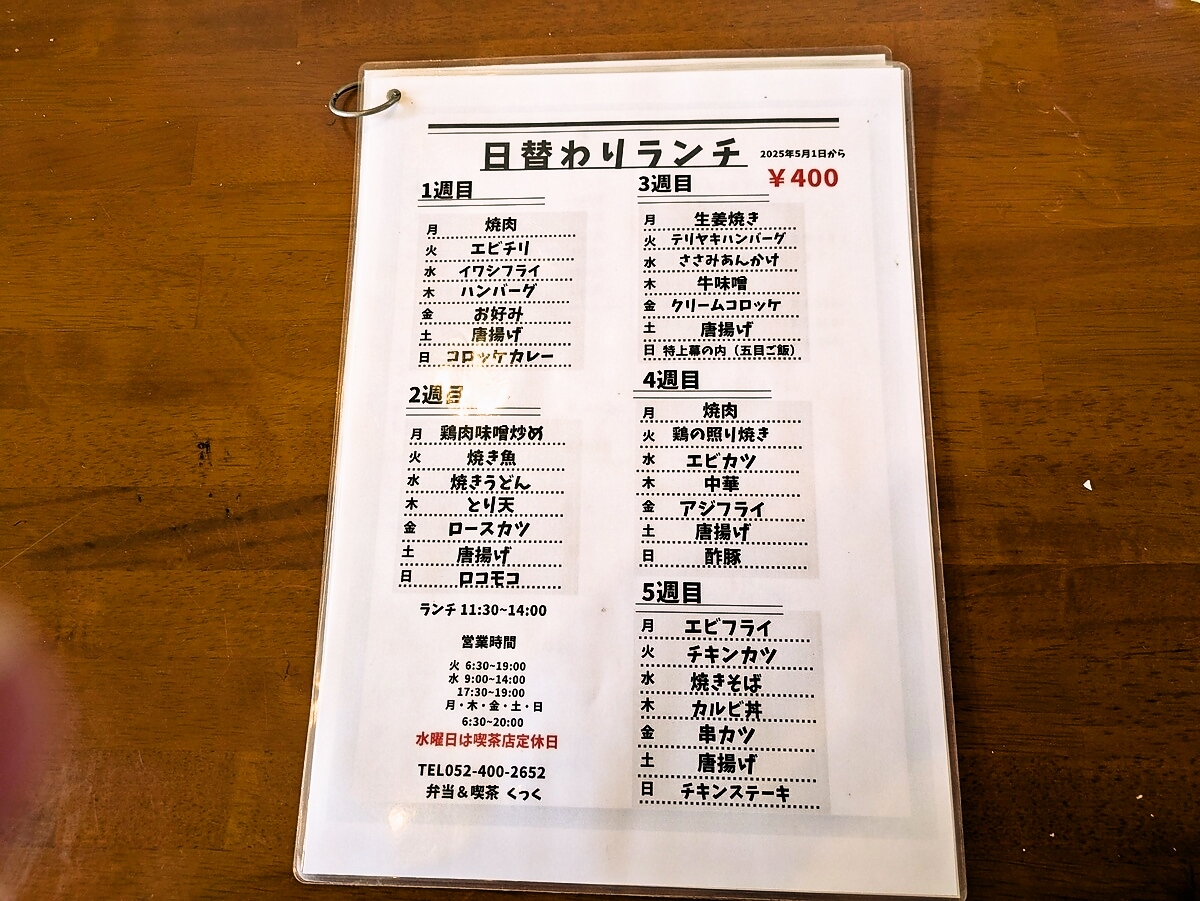 日替わりランチ
2025年5月1日から
￥400
1週目
月 焼肉
火 エビチリ
水 イワシフライ
木 ハンバーグ
金 お好み
土 唐揚げ
日 コロッケカレー
2週目
月 鶏肉味噌炒め
火 焼き魚
水 焼きうどん
木 とり天
金 ロースカツ
土 唐揚げ
日 ロコモコ
ランチ 11:30~14:00
営業時間
火 6:30~19:00
水 9:00~14:00
17:30~19:00
月・木・金・土・日
6:30~20:00
水曜日は喫茶店定休日
TEL052-400-2652
弁当＆喫茶 くっく
3週目
月 生姜焼き
火 テリヤキハンバーグ
水 ささみあんかけ
木 牛味噌
金 クリームコロッケ
土 唐揚げ
日 特上幕の内（五目ご飯）
4週目
月 焼肉
火 鶏の照り焼き
水 エビカツ
木 中華
金 アジフライ
土 唐揚げ
日 酢豚
5週目
月 エビフライ
火 チキンカツ
水 焼きそば
木 カルビ丼
金 串カツ
土 唐揚げ
日 チキンステーキ